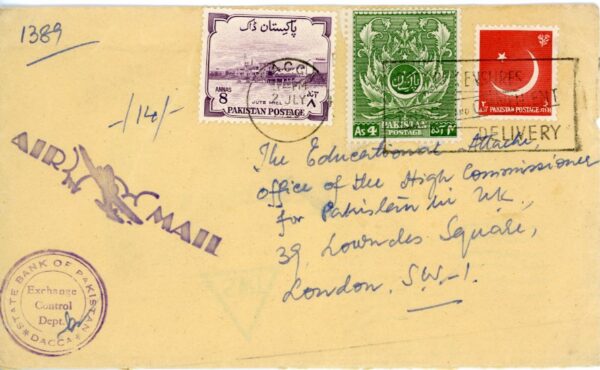 1389
-/14/-
پاکستان ڈاک
ANNAS
8
JUTE MILL
PAKISTAN POSTAGE
As 4
PAKISTAN
POSTAGE
PAKISTAN POSTAGE
2 JLY
ENSURES
DELIVERY
AIR MAIL
The Educational Attache,
Office of the High Commissioner
for Pakistan in UK,
39, Lowndes Square,
London. S.W-1.
STATE BANK OF PAKISTAN
Exchange
Control
Dept.
DACCA